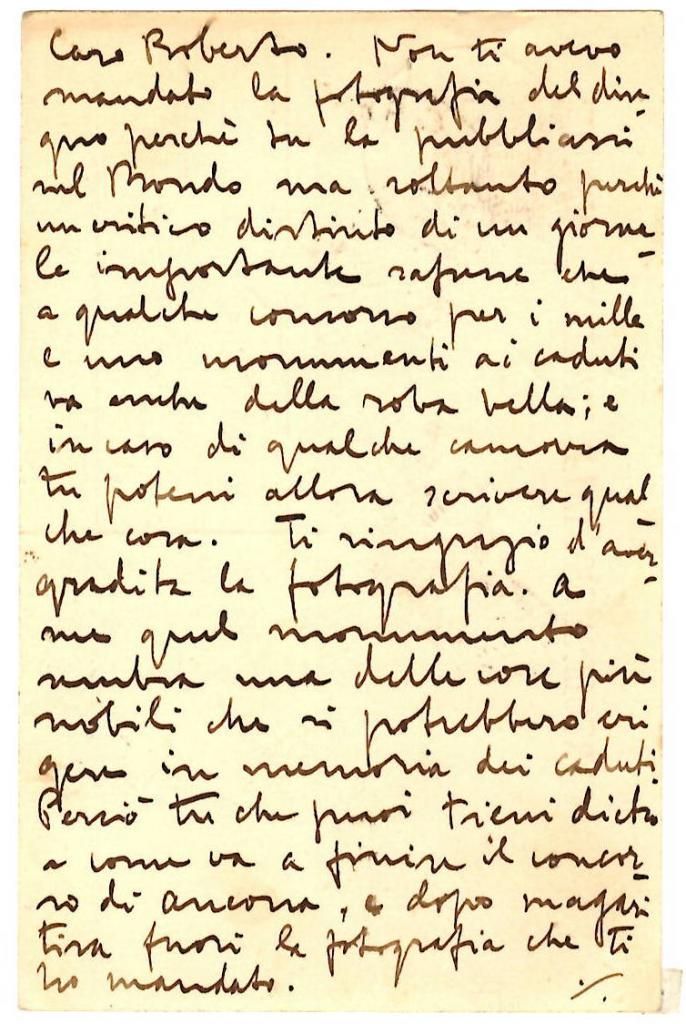 Caro Roberto. Non ti avevo
mandato la fotografia del dise
gno perchè tu la pubblicassi
nel Mondo ma soltanto perchè
un critico distinto di un giorna-
le importante sapesse che
a qualche concorso per i mille
e uno monumenti ai caduti
va anche della roba bella; e
in caso di qualche camorra
tu potessi allora scrivere qual
che cosa. Ti ringrazio d'aver-
gradita la fotografia. A
me quel monumento
sembra una delle cose più
nobili che si potrebbero eri
gere in memoria dei caduti.
Perciò tu che puoi tieni dietro
a come va a finire il concor-
so di Ancona, e dopo magari
tira fuori la fotografia che ti
ho mandato. ./.